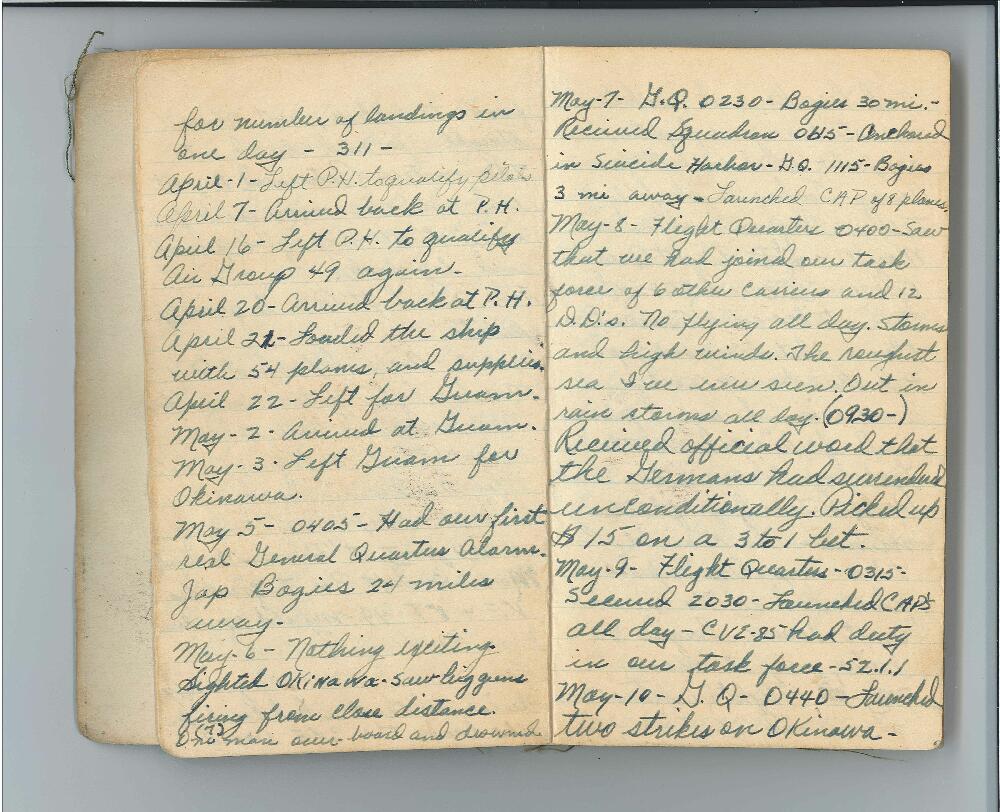 for number of landings in
one day - 311 -
April-1- Left P.H. to qualify pilots
April 7- Arrived back at P.H.
April 16- Left P.H. to qualify
Air Group 49 again.-
April 20- Arrived back at P.H.
April 21- Loaded the ship
with 54 planes, and supplies.
April 22- Left for Guam.
May-2- Arrived at Guam.
May-3- Left Guam for
Okinawa.
May 5- 0405- Had our first
real General Quarters Alarm.
Jap Bogies 24 miles
away-
May-6- Nothing exciting.
Sighted Okinawa. Saw big guns
firing from close distance.
One man over board and drowned
May-7- G.Q. 0230- Bogies 30 mi.-
Received Squadron 0615- Anchored
in Suicide Harbor- G.Q. 1115- Bogies
3 mi away- Launched CAP of 8 planes.
May-8- Flight Quarters 0400- Saw
that we had joined our task
force of 6 other carriers and 12
D.D.'s. No flying all day. Storms
and high winds. The roughest
sea I've ever seen. Out in
rain storms all day. (0930-)
Received official word that
the Germans had surrendered
unconditionally. Picked up
$15 on a 3 to 1 bet.
May-9- Flight Quarters- 0315-
Secured 2030- Launched CAP's
all day- CVE-85 had duty
in our task force- 52.1.1
May-10- G.Q- 0440- Launched
two strikes on Okinawa-